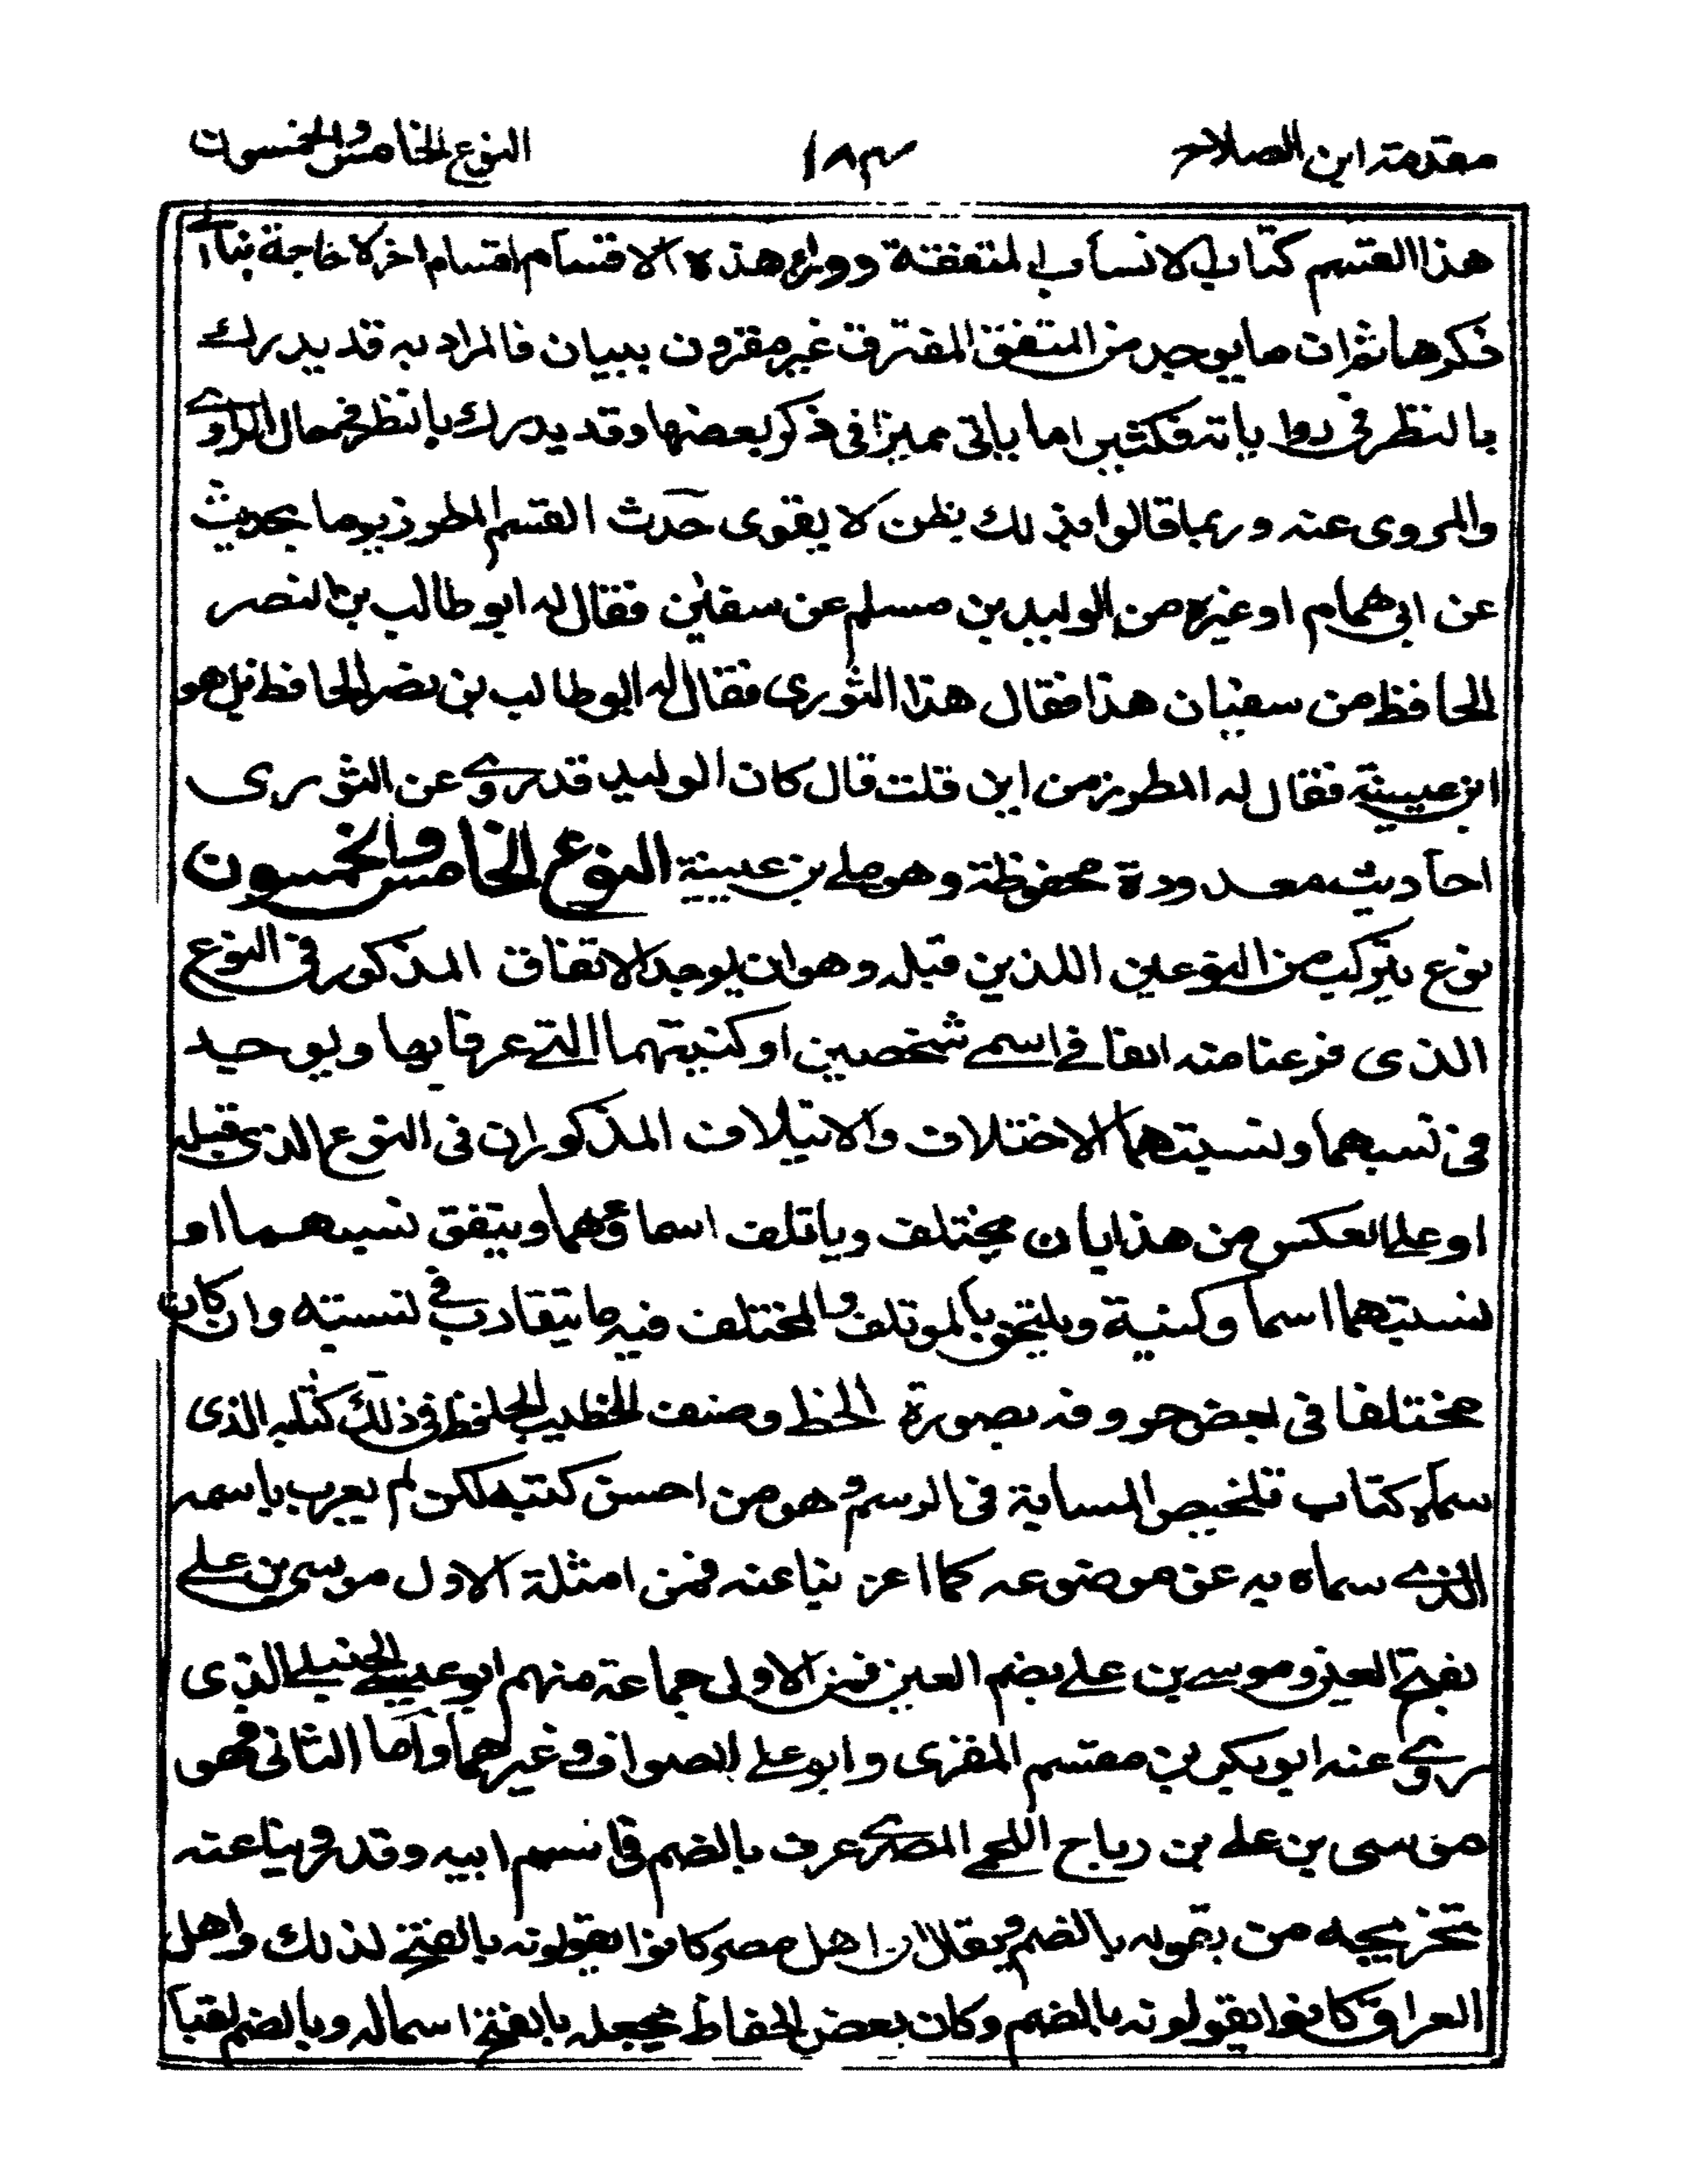 مقدمة ابن الصلاح ١٨٣ النوع الخامس والخمسون
هذا القسم كتاب الانساب المتفقة ووراء هذه الاقسام اقسام اخر لا حاجة بنا الى
ذكرها ثم ان ما يوجد من المتفق المفترق غير مقرون ببيان فالمراد به قد يدرك
بالنظر في رواياته فكثيرا ما ياتى مميزا فى ذكر بعضها وقد يدرك بالنظر فى حال الراوى
والمروى عنه وربما قالوا فى ذلك بظن لا يقوى حدث القسم المطرز يوما بحديث
عن ابى همام او غيره من الوليد بن مسلم عن سفين فقال له ابو طالب بن النصر
الحافظ من سفيان هذا فقال هذا الثورى فقال له ابو طالب بن نصر الحافظ بل هو
ابن عيينة فقال له المطرز من اين قلت قال كان الوليد قد روى عن الثورى
احاديث معدودة محفوظة وهو ملى بن عيينة النوع الخامس والخمسون
نوع يتركب من النوعين اللذين قبله وهو ان يوجد الاتفاق المذكور فى النوع
الذى فرغنا منه انفا فى اسمى شخصين او كنيتهما التى عرفا بها ويوجد
فى نسبهما ونسبتهما الاختلاف والايتلاف المذكوران فى النوع الذى قبله
او على العكس من هذا بان يختلف وياتلف اسماؤهما ويتفق نسبهما او
نسبتهما اسما وكنية ويلتحق بالموتلف والمختلف فيه ما يتقارب فى نسبته وان كان
مختلفا فى بعض حروفه بصورة الخط وصنف الخطيب الحافظ فى ذلك كتابه الذى
سماه كتاب تلخيص المسابة فى الرسم وهو من احسن كتبه لكن لم يعرب باسمه
الذى سماه به عن موضوعه كما اعربنا عنه فمن امثلة الاول موسى بن على
بفتح العين وموسى بن على بضم العين فمن الاولى جماعة منهم ابو عيسى الحنبلى الذى
روى عنه ابو بكر بن مقسم المقرى وابو على الصواف وغيرهما واما الثانى فهو
موسى بن على بن رباح اللخمى المصرى عرف بالضم فى اسم ابيه وقد روينا عنه
تخريجه من يقوله بالضم ويقال ان اهل مصر كانوا يقولونه بالفتح لذلك واهل
العراق كانوا يقولونه بالضم وكان بعض الحفاظ يجعله بالفتح اسما له وبالضم لقبا